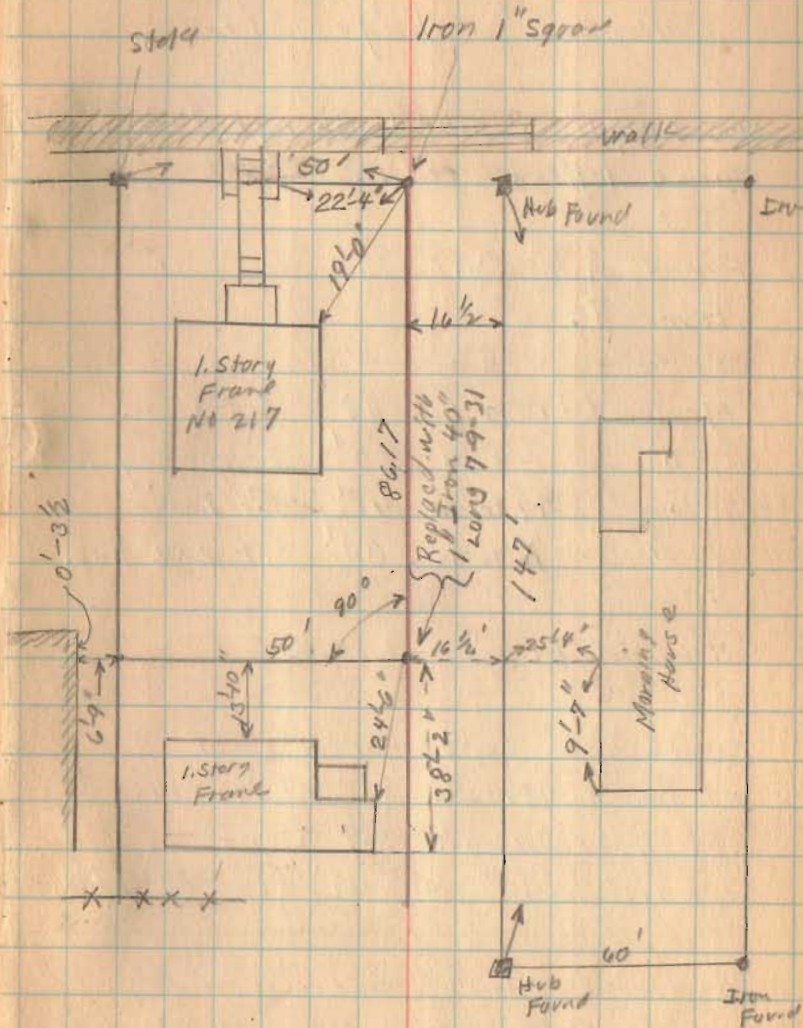 Iron 1" Square
Walk
50'
22'-4"
Hub Found
19'-0"
16 1/2
1. Story
Frame
No 217
86.17
Replaced with
1" Iron 40"
Long 7-9-31
147'
0'-3 1/2
90°
50'
16 1/2'
25'-4"
6'-9"
13'-10"
24'-6"
38'-2"
9'-7"
House
1. Story
Frame
60'
Hub
Found
Iron
Found